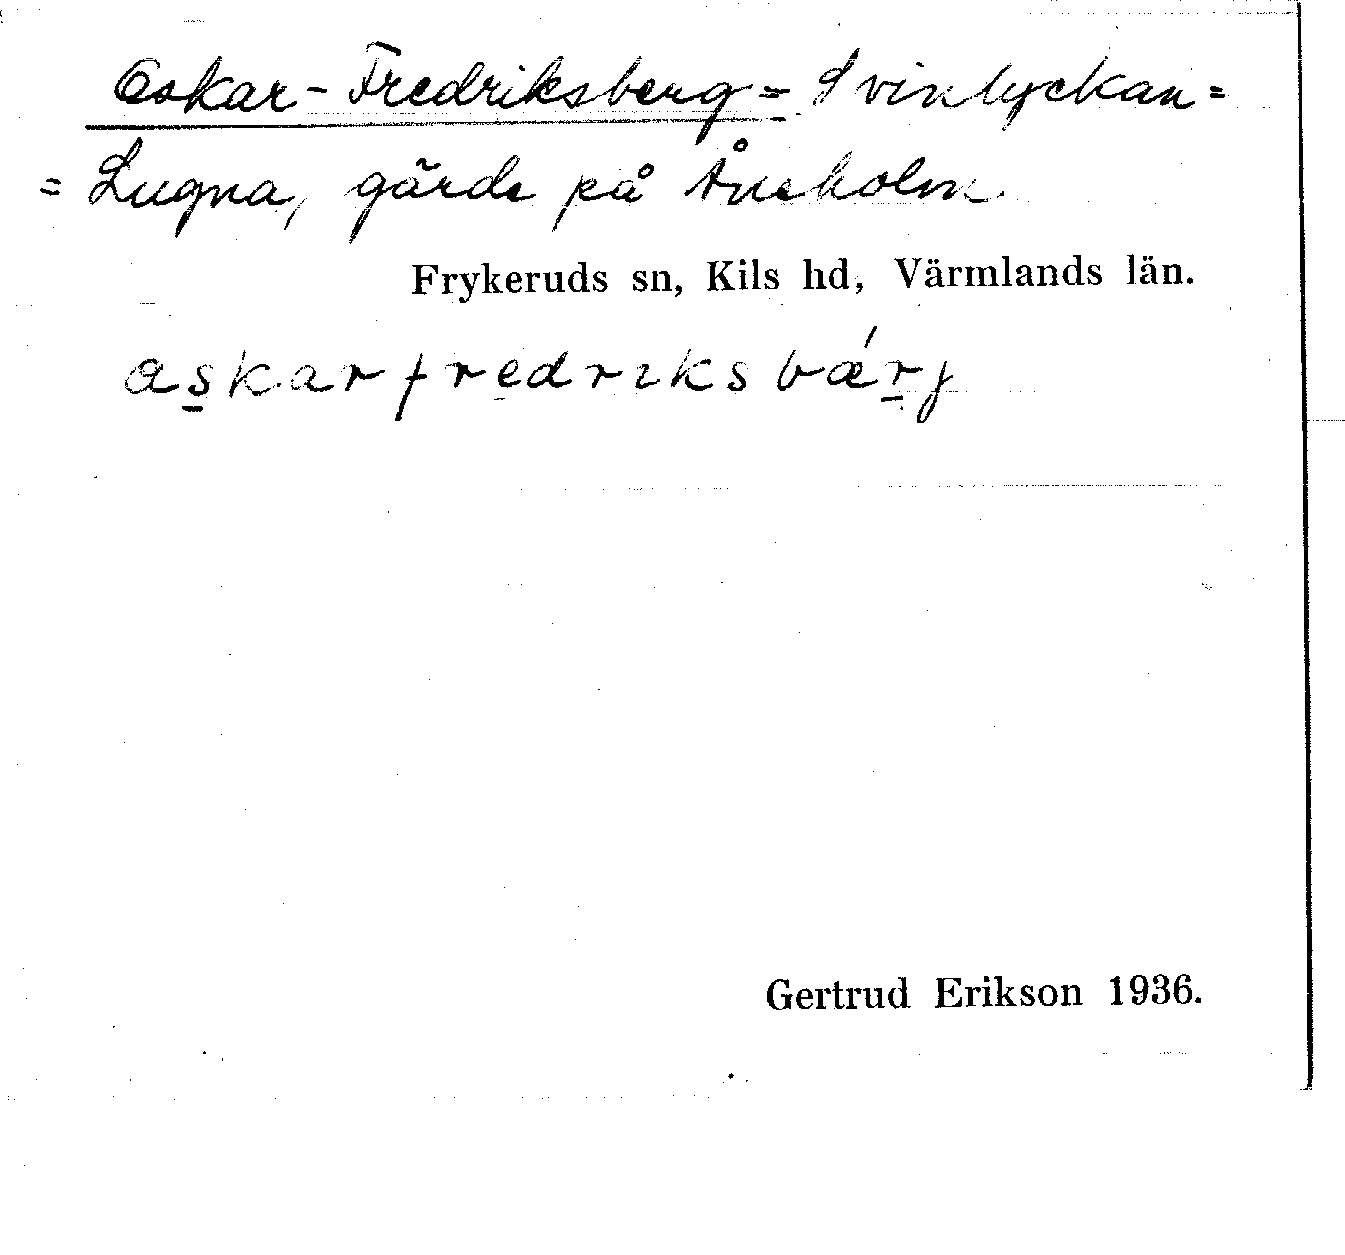 Oskar-Fredriksberg = Svinlyckan =
= Lugna, gärde på Åneholm
Frykeruds sn, Kils hd, Värmlands län.
askarfredriksbǽrj
Gertrud Erikson 1936.